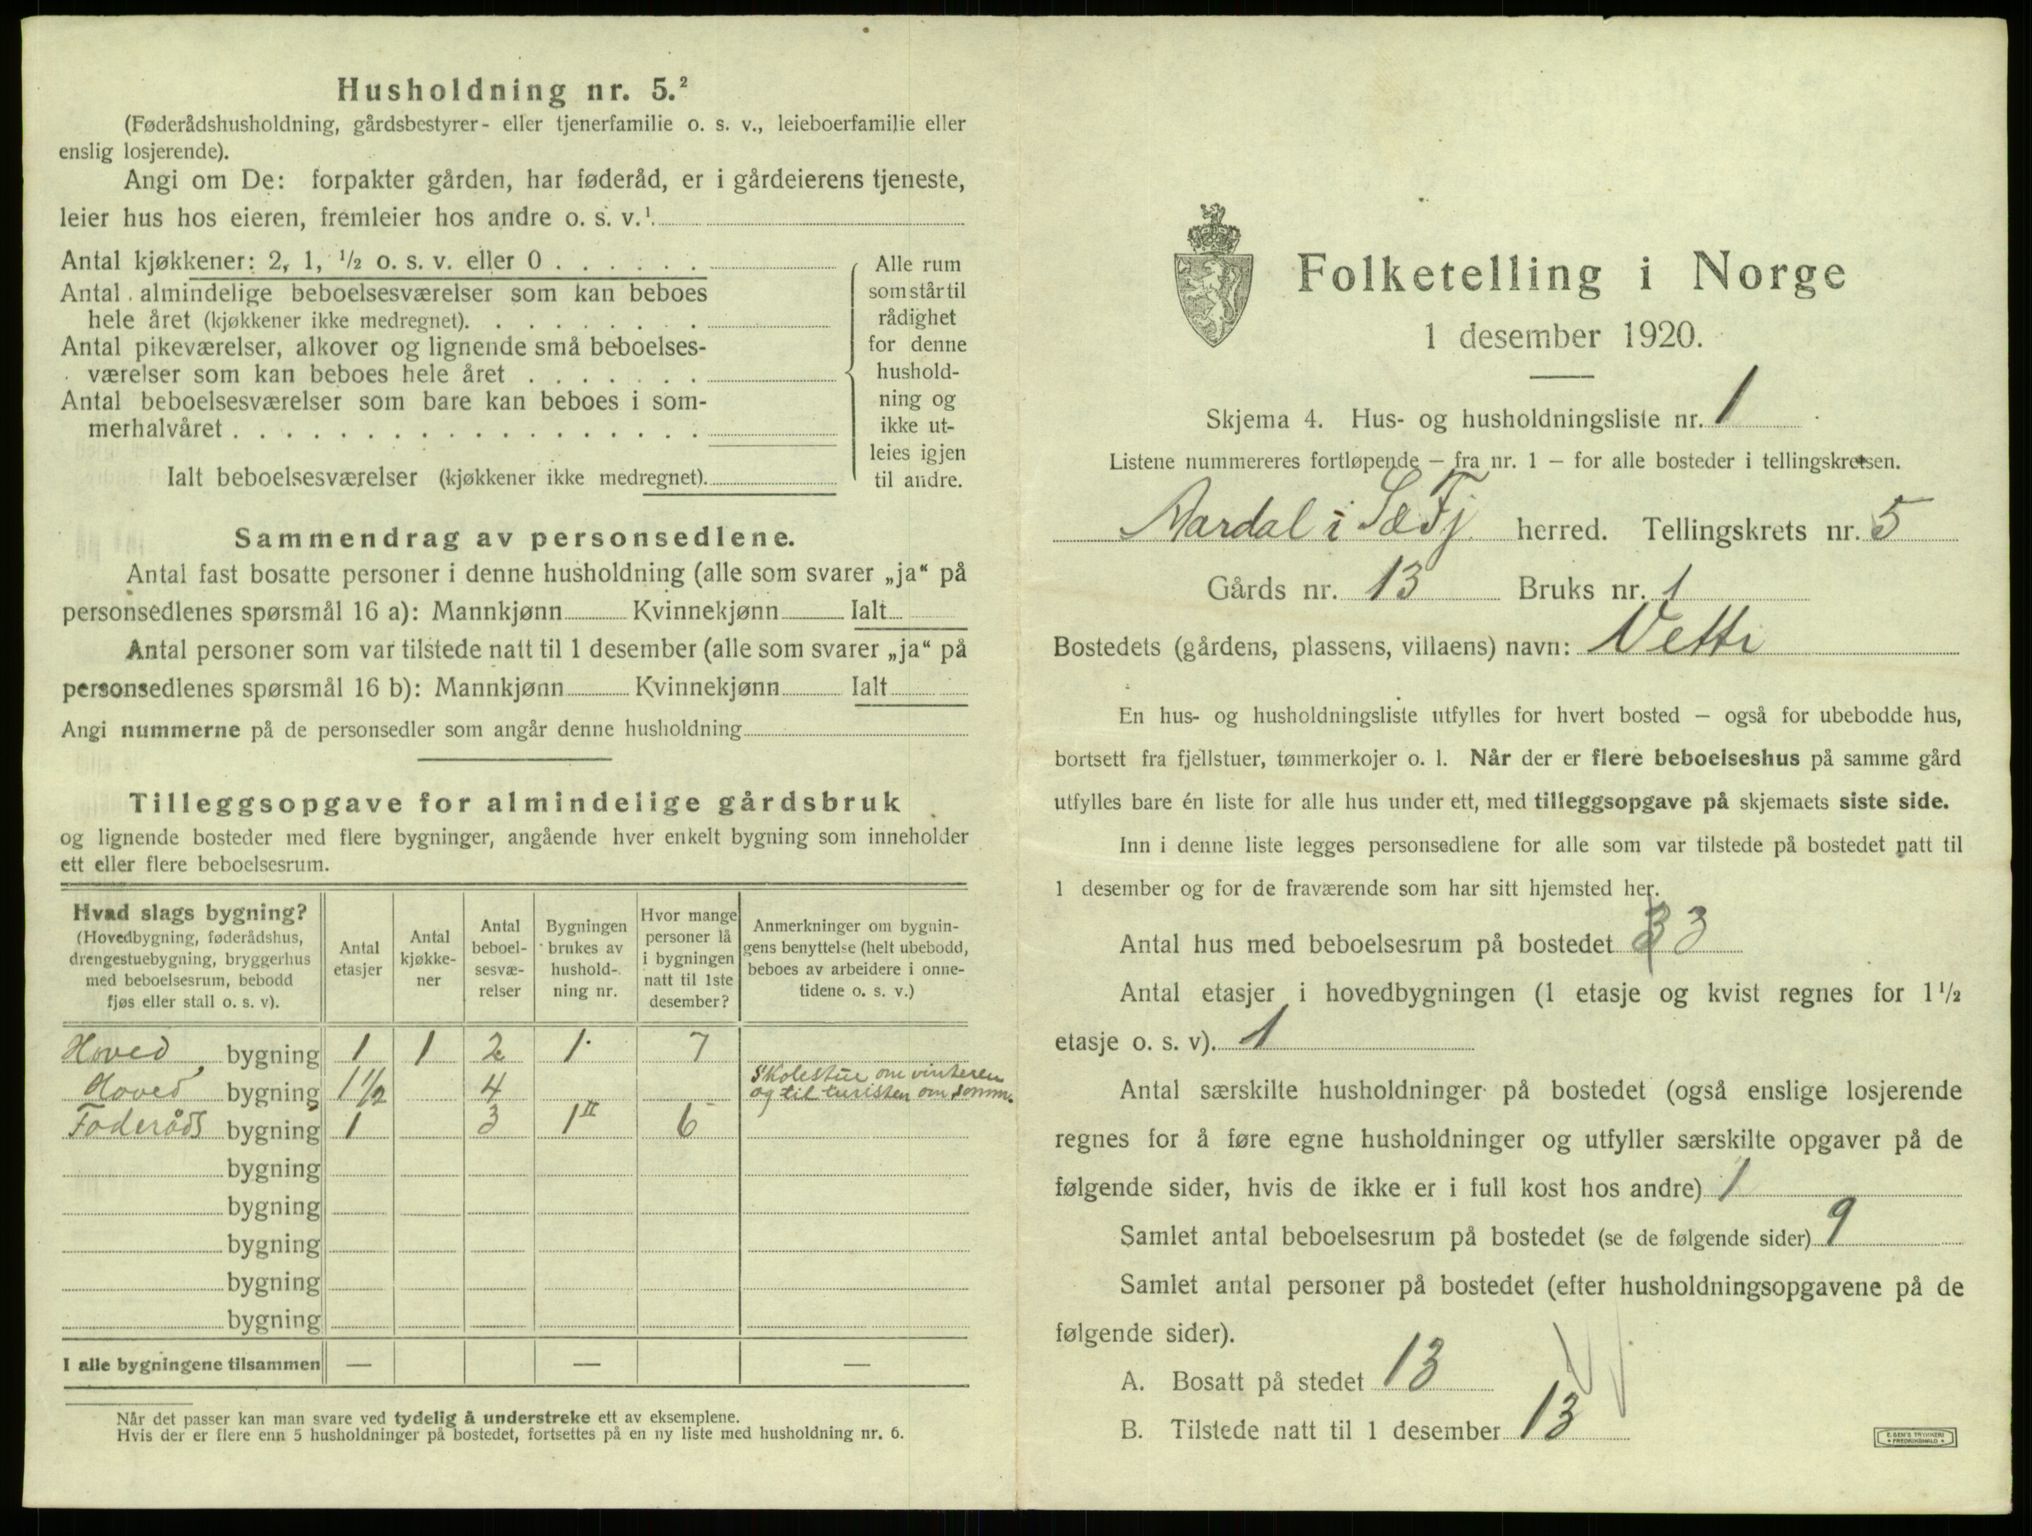 Husholdning nr. 5.²
(Føderådshusholdning, gårdsbestyrer- eller tjenerfamilie o. s. v., leieboerfamilie eller
enslig losjerende).
Angi om De: forpakter gården, har føderåd, er i gårdeierens tjeneste,
leier hus hos eieren, fremleier hos andre o. s. v.¹
Antal kjøkkener: 2, 1, ½ o. s. v. eller 0
Antal almindelige beboelsesværelser som kan beboes
hele året (kjøkkener ikke medregnet).
Antal pikeværelser, alkover og lignende små beboelses-
værelser som kan beboes hele året
Antal beboelsesværelser som bare kan beboes i som-
merhalvåret
Ialt beboelsesværelser (kjøkkener ikke medregnet).
Alle rum
som står til
rådighet
for denne
hushold-
ning og
ikke ut-
leies igjen
til andre.
Sammendrag av personsedlene.
Antal fast bosatte personer i denne husholdning (alle som svarer „ja“ på
personsedlenes spørsmål 16 a): Mannkjønn Kvinnekjønn Ialt
Antal personer som var tilstede natt til 1 desember (alle som svarer „ja“ på
personsedlenes spørsmål 16 b): Mannkjønn Kvinnekjønn Ialt
Angi nummerne på de personsedler som angår denne husholdning
Tilleggsopgave for almindelige gårdsbruk
og lignende bosteder med flere bygninger, angående hver enkelt bygning som inneholder
ett eller flere beboelsesrum.
Hvad slags bygning?
(Hovedbygning, føderådshus,
drengestuebygning, bryggerhus
med beboelsesrum, bebodd
fjøs eller stall o. s. v).
Antal
etasjer
Antal
kjøkke-
ner
Antal
beboel-
sesvæ-
relser
Bygningen
brukes av
hushold-
ning nr.
Hvor mange
personer lå
i bygningen
natt til 1ste
desember?
Anmerkninger om bygnin-
gens benyttelse (helt ubebodd,
beboes av arbeidere i onne-
tidene o. s. v.)
Hoved bygning 1 1 2 1 7
Hoved bygning 1½ 4 Skolestue om vinteren
og til turisten om somm.
Føderåds bygning 1 3 1 II 6
bygning
bygning
bygning
bygning
bygning
I alle bygningene tilsammen — — —
Når det passer kan man svare ved tydelig å understreke ett av eksemplene.
Hvis der er flere enn 5 husholdninger på bostedet, fortsettes på en ny liste med husholdning nr. 6.
Folketelling i Norge
1 desember 1920.
Skjema 4. Hus- og husholdningsliste nr. 1
Listene nummereres fortløpende – fra nr. 1 – for alle bosteder i tellingskretsen.
Aardal i S & Fj herred. Tellingskrets nr. 5
Gårds nr. 13 Bruks nr. 1
Bostedets (gårdens, plassens, villaens) navn: Vetti
En hus- og husholdningsliste utfylles for hvert bosted – også for ubebodde hus,
bortsett fra fjellstuer, tømmerkojer o. l. Når der er flere beboelseshus på samme gård
utfylles bare én liste for alle hus under ett, med tilleggsopgave på skjemaets siste side.
Inn i denne liste legges personsedlene for alle som var tilstede på bostedet natt til
1 desember og for de fraværende som har sitt hjemsted her.
Antal hus med beboelsesrum på bostedet 3
Antal etasjer i hovedbygningen (1 etasje og kvist regnes for 1½
etasje o. s. v). 1
Antal særskilte husholdninger på bostedet (også enslige losjerende
regnes for å føre egne husholdninger og utfyller særskilte opgaver på de
følgende sider, hvis de ikke er i full kost hos andre) 1
Samlet antal beboelsesrum på bostedet (se de følgende sider) 9
Samlet antal personer på bostedet (efter husholdningsopgavene på de
følgende sider).
A. Bosatt på stedet 13
B. Tilstede natt til 1 desember 13